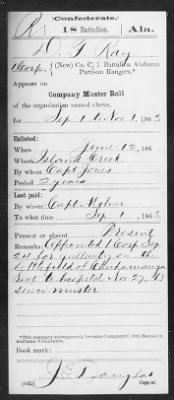 (Confederate.)
R 18 Battalion. Ala.
D. F. Ray
1 Corp., (New) Co. C, 1 Battalion Alabama
Partisan Rangers.*
Appears on
Company Muster Roll
of the organization named above,
for Sep 1 to Nov 1, 1863.
Enlisted:
When June 12, 186
Where Island Creek
By whom Capt Jones
Period 3 years
Last paid:
By whom Capt
To what time Sep 1, 1863.
Present or absent Present
Remarks: Appointed 1 Corp Sep
for gallantry on the
battlefield of Chickamauga
sent to hospital Nov 27, 63
since muster
*This company subsequently became Company C, 18th Battalion
Alabama Volunteers.
Book mark:
J. E. Douglas
(642) Copyist.